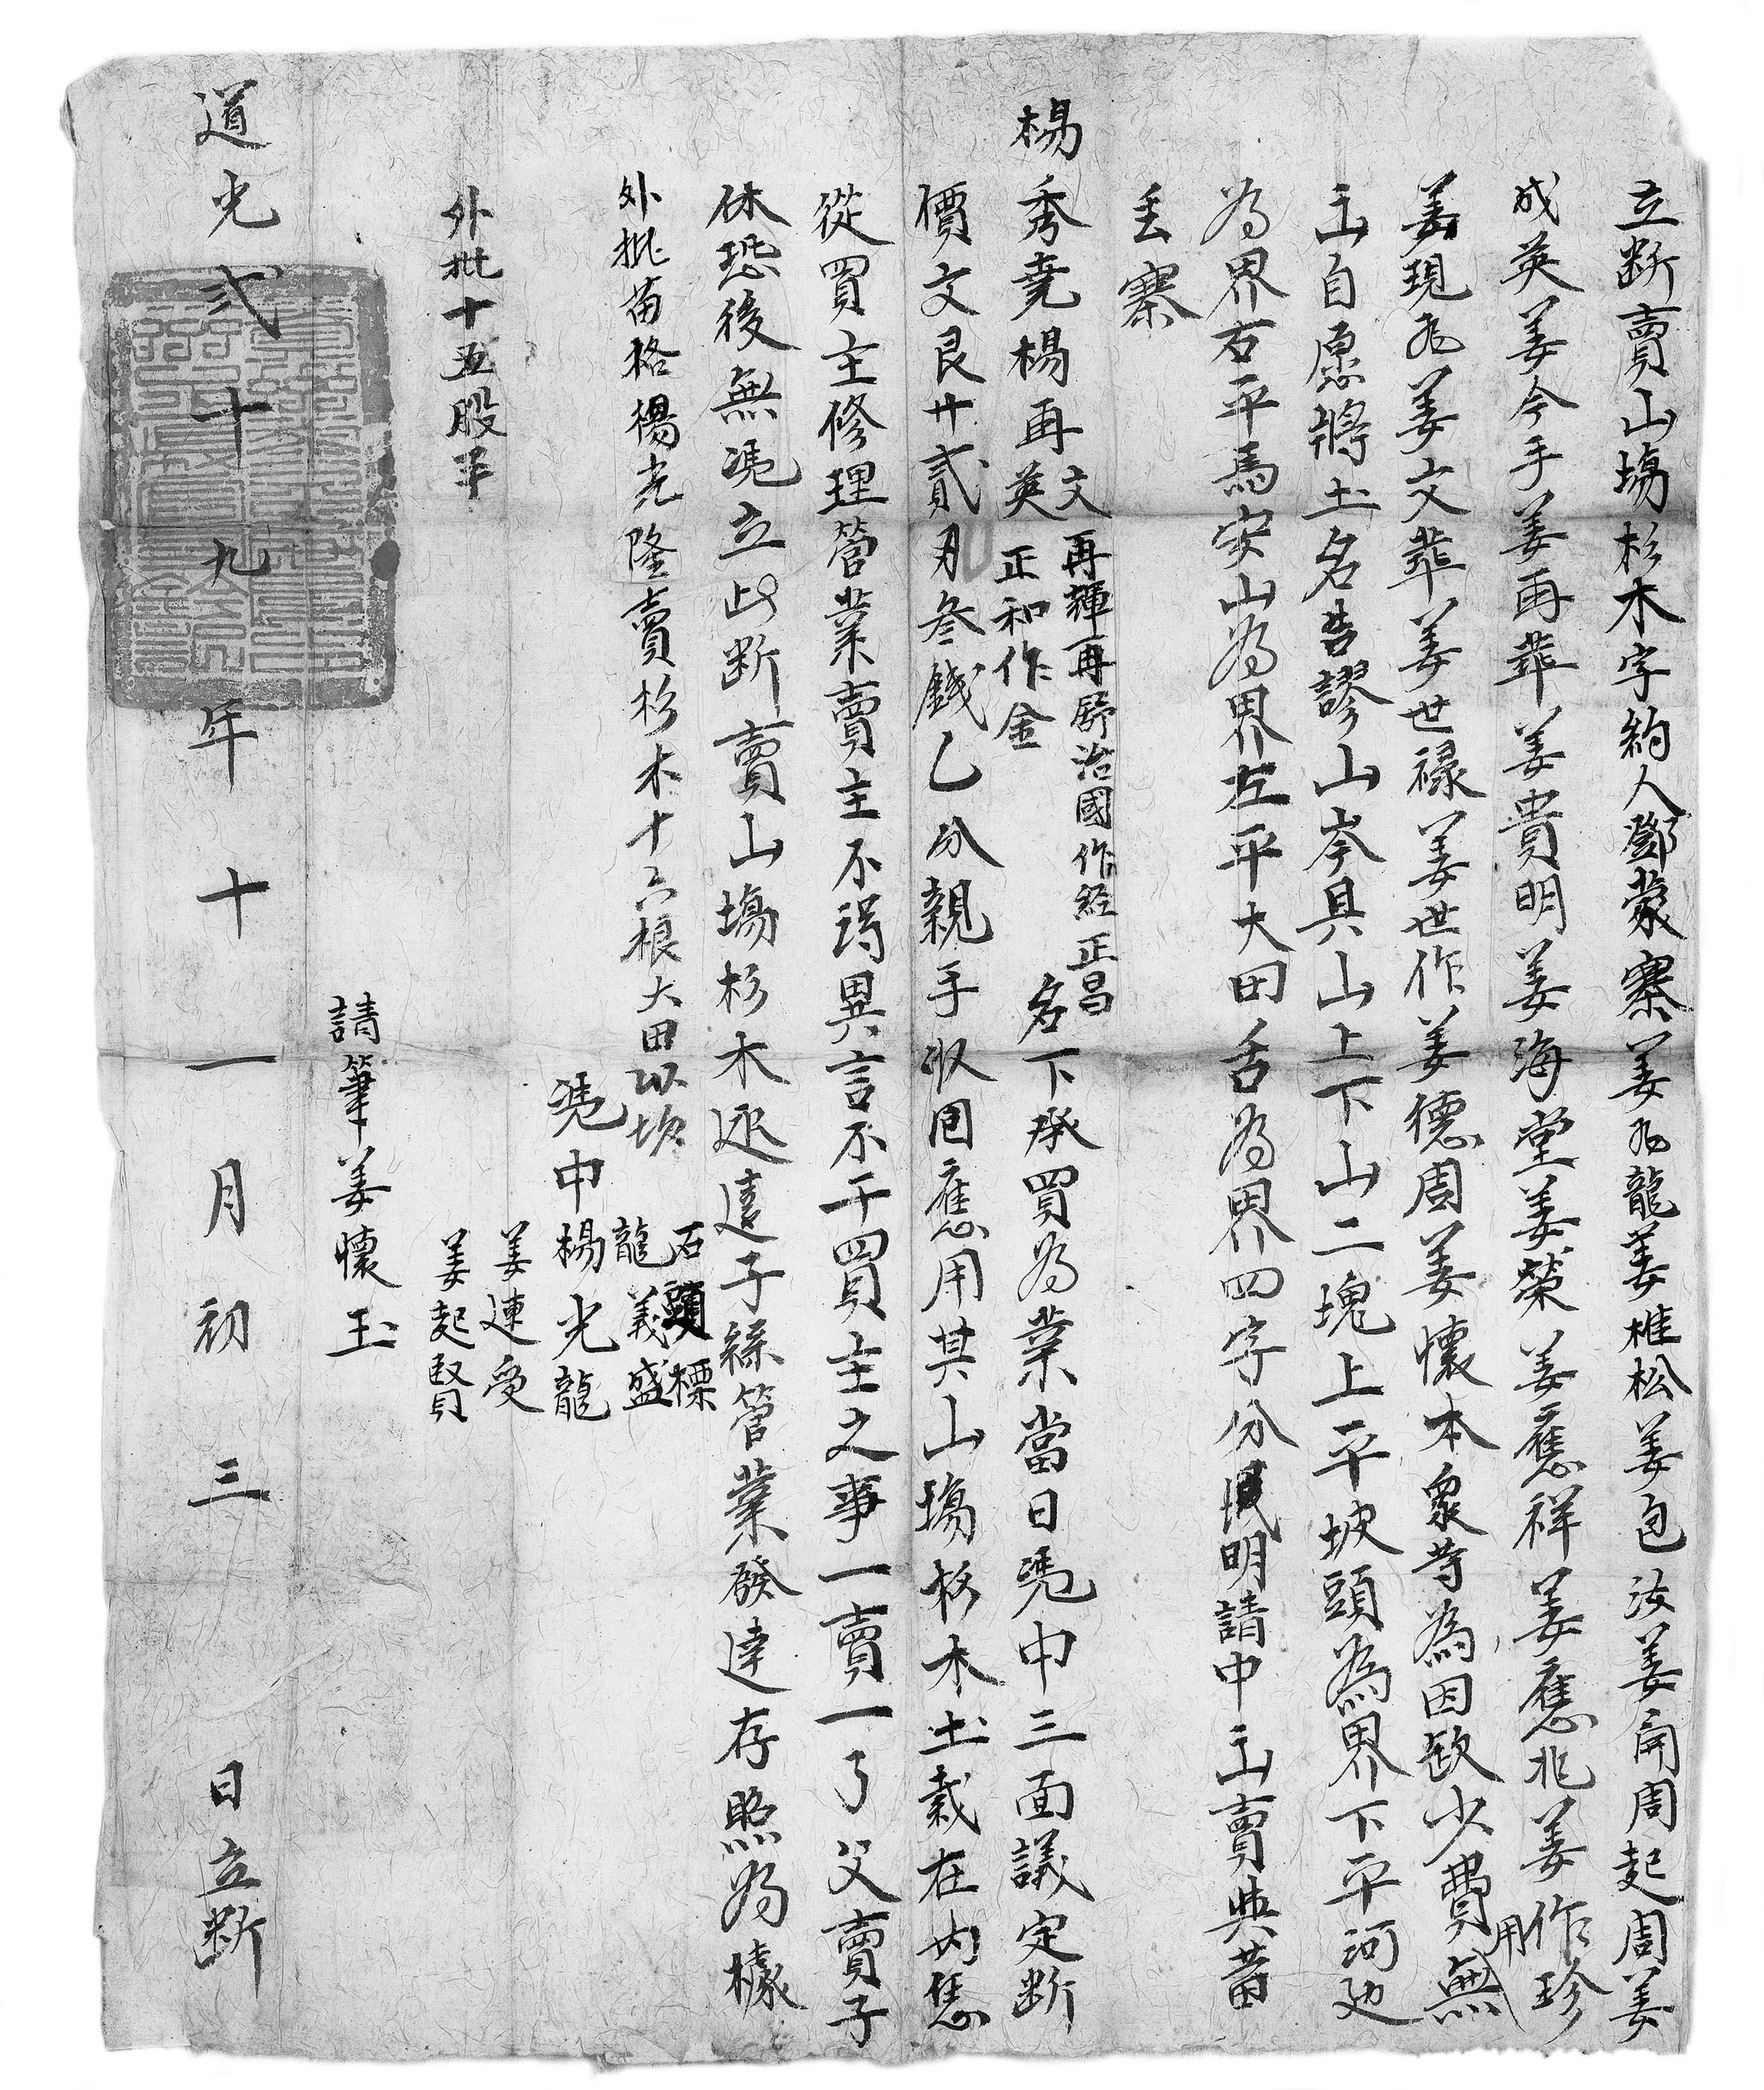 立断賣山塲杉木字約人鄧蒙寨姜老龍姜樵松姜包汝姜開周起周姜
成英姜今手姜再華姜貴明姜海堂姜榮姜應祥姜應兆姜作珍
姜現老姜文華姜世禄姜世作姜德周姜懷本衆等為因缺少費用無
主自愿將土名昔謬山岑具山上下山二塊上平坡頭為界下平河边
為界右平馬安山為界左平大田舌為界四字分明請中主賣與苗
丢寨
楊秀堯楊再文英再輝再舉治國作經正昌正和作金名下承買為業當日憑中三面議定断
價文艮廿貳刃叁錢乙分親手收囬應用其山塲杉木土栽在內慿
從買主修理營業賣主不得異言不干買主之事一賣一了父賣子
休恐後無憑立此断賣山塲杉木返遠子孫管業發達存照為據
外批苗格楊光隆賣杉木十六根大田以坎
石頭標
龍義盛
憑中楊光龍
姜連受
姜起賢
外批十五股平
請筆姜懷玉
道光貳十九年十一月初三日立断